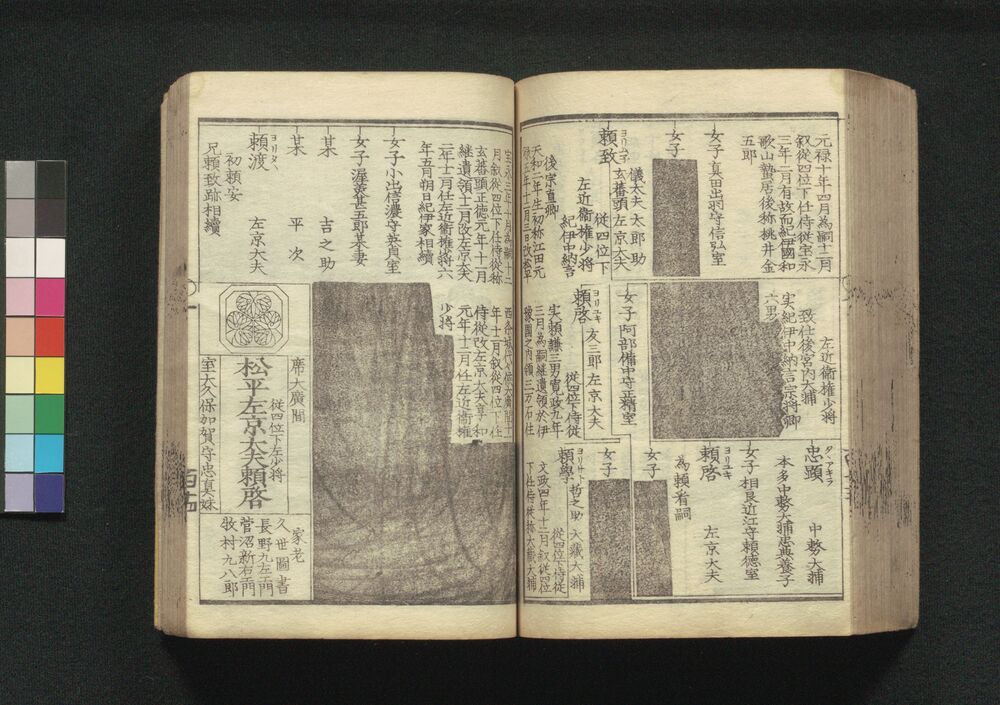 元禄十年四月為嗣十二月
叙従四位下任侍従宝永
三年二月有故而紀伊國和
歌山蟄居後称桃井金
五郎
女子 真田出羽守信弘室
女子
頼致
ヨリユキ
儀太夫 太郎助
玄蕃頭 左京大夫
従四位下
左近衛権少将
紀伊中納言
後宗直卿
天和二年生初称江田元
左近衛権少将
致仕後宮内大輔
実紀伊中納言宗将卿
六男
女子 阿部備中守正精室
頼啓
ヨリユキ
友三郎 左京大夫
従四位下侍従
実頼謙三男寛政九年
三月為嗣継遺領於伊
豫國之内領三万石住
忠顕
タヾアキラ
中務大輔
本多中務大輔忠典養子
女子 相良近江守頼徳室
頼啓
ヨリユキ
左京大夫
為頼看嗣
女子
女子
頼學
ヨリサト
哲之助 大蔵大輔
従四位下侍従
文政四年十二月叙従四位
下任侍従称大蔵大輔
宝永三年十月為嗣十二
月叙従四位下任侍従称
玄蕃頭正徳元年十一月
継遺領十二月改左京大夫
二年十二月任左近衛権少将六
年五月朔日紀伊家相續
女子 小出信濃守英貞室
女子 渥美甚五郎某妻
某 吉之助
某 平次
頼渡
ヨリタヾ
左京大夫
初頼安
兄頼致跡相續
西条城代々侯大廣間十
年十一月叙従四位下任
侍従改左京大夫享和
元年十二月任左近衛権
少将
席大廣間
従四位下左少将
松平左京大夫頼啓
室大久保加賀守忠真妹
家老
久世圖書
長野九左エ門
菅沼新右エ門
牧村九八郎